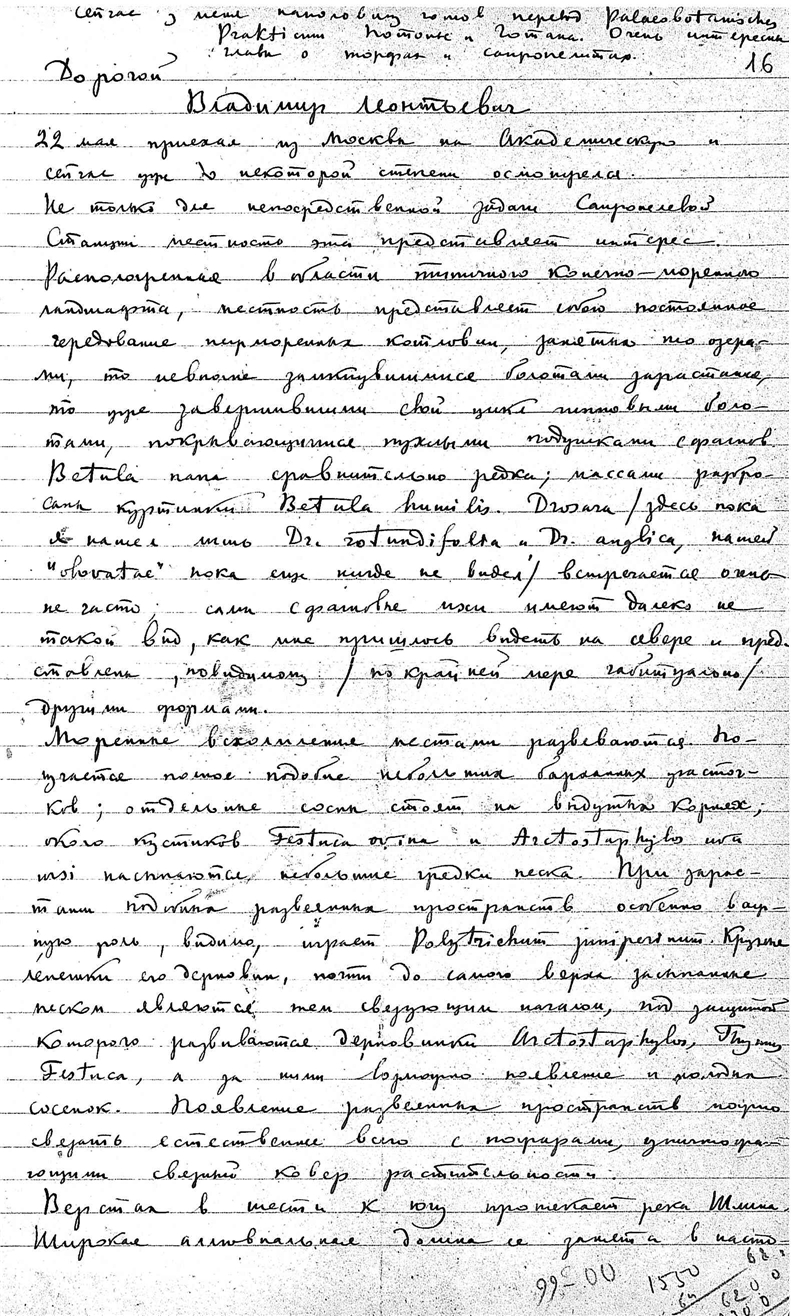 Сейчас у меня наполовину готов перевод Palaeobotanisches
Prakticum Потонье и Готана. Очень интересны
главы о торфах и сапропелитах.
16
Дорогой
Владимир Леонтьевич
22 мая приехал из Москвы на Академическую и
сейчас уже до некоторой степени осмотрелся.
Не только для непосредственной задачи Сапропелевой
Станции местность эта представляет интерес.
Расположенная в области типичного конечно-моренного
ландшафта, местность представляет собою постоянное
чередование межморенных котловин, занятых то озера-
ми, то невполне замкнувшимися болотами зарастания,
то уже завершившими свой цикл типовыми боло-
тами, покрывающимися пухлыми подушками сфагнов
Betula nana сравнительно редка; массами разбро-
саны куртинки Betula humilis. Drosera /здесь пока
я нашел лишь Dr. rotundifolia и Dr. anglica, нашей
"obovatae" пока еще нигде не видел/ встречается очень
не часто; сами сфагновые мхи имеют далеко не
такой вид, как мне пришлось видеть на севере и пред-
ставлены, повидимому /по крайней мере габитуально/
другими формами.
Моренные всхолмления местами развеваются. По-
лучается полное подобие небольших барханных участоч-
ков; отдельные сосны стоят на выдутых корнях;
около кустиков Festuca ovina и Arctostaphylos uva
ursi насыпаются небольшие грядки песка. При зарас-
тании подобных развеянных пространств особенно важ-
ную роль, видимо, играет Polytrichum juniperinum. Круглые
лепешки его дерновин, почти до самого верха засыпанные
песком являются тем связующим началом, под защитой
которого развиваются дерновинки Arctostaphylos, Thymus
Festuca, а за ними возможно появление и молодых
сосенок. Появление развеянных пространств можно
связать естественнее всего с пожарами, уничтожа-
ющими связный ковер растительности.
Верстах в шести к югу протекает река Шлина.
Широкая аллювиальная долина ее занята в насто-
1550